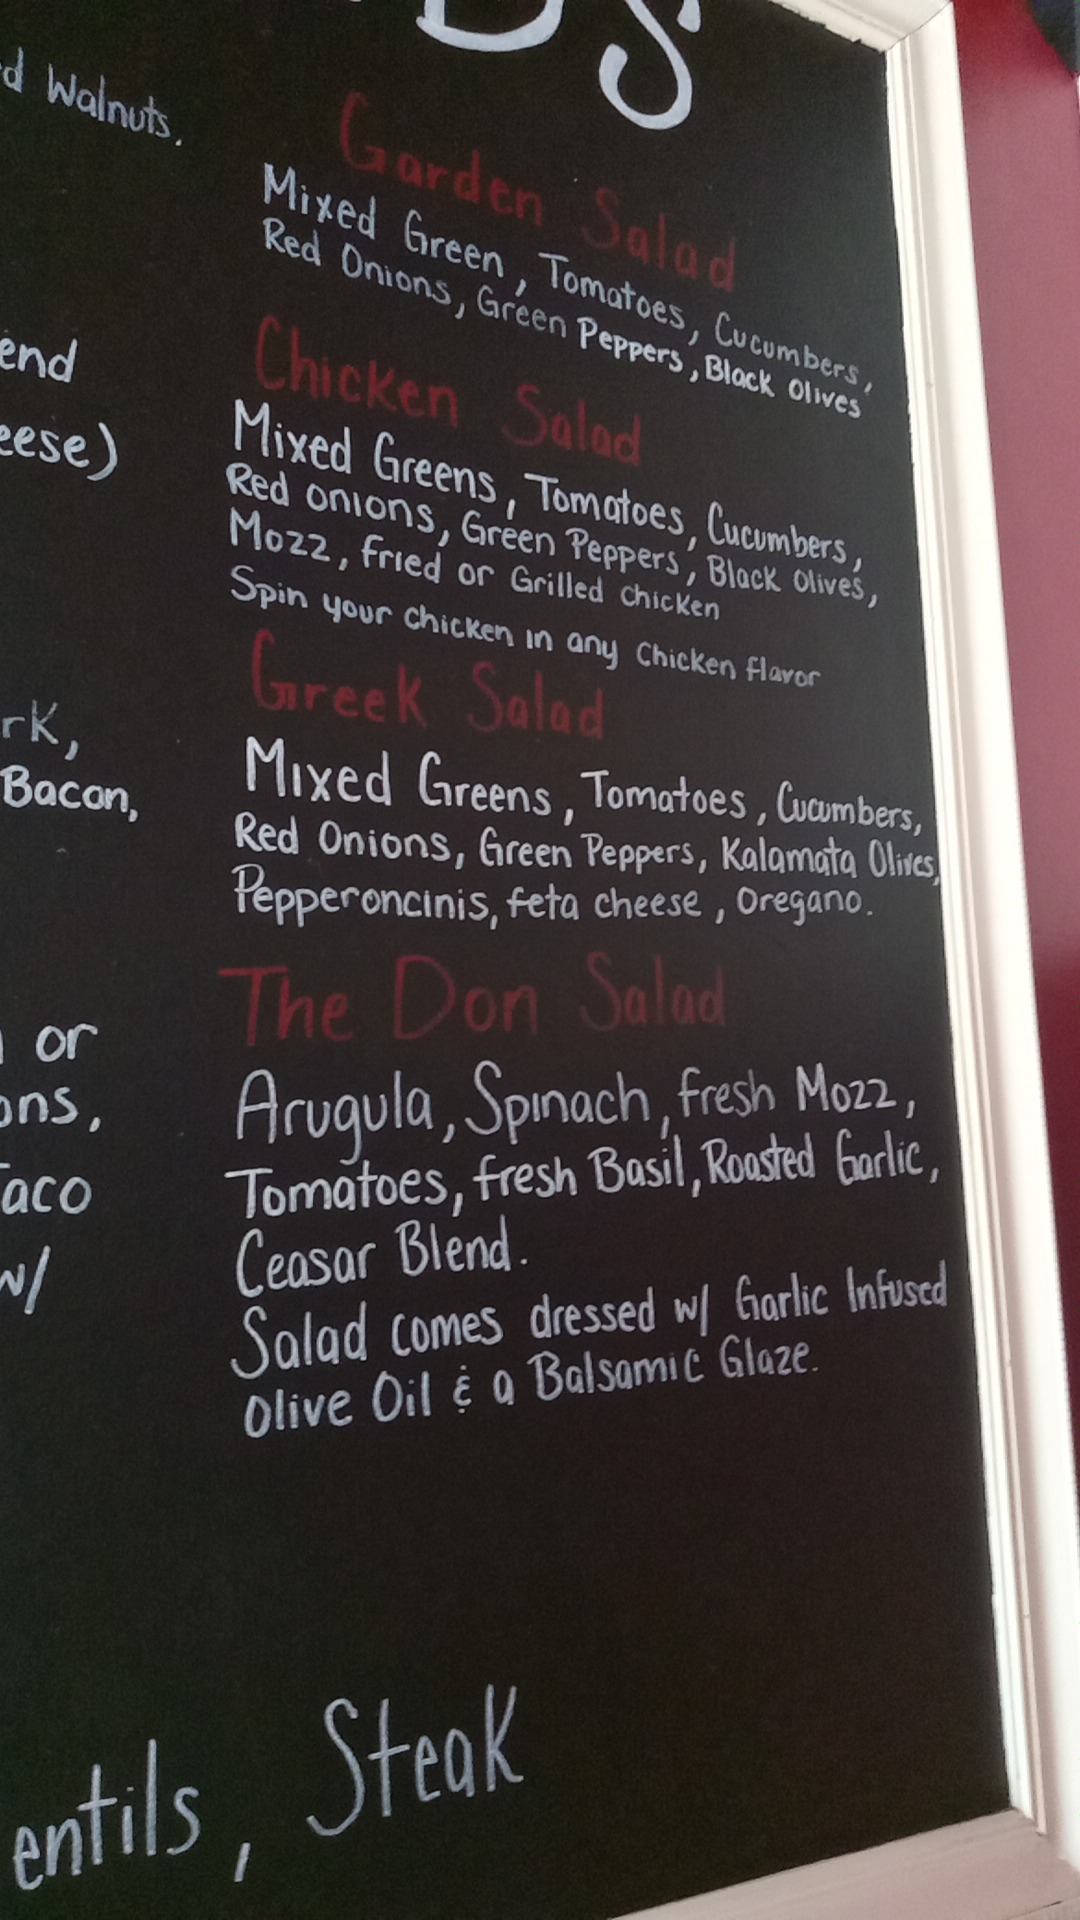 DS
d Walnuts.
end
eese)
rk,
Bacon,
or
ons,
Taco
w/
Garden Salad
Mixed Green, Tomatoes, Cucumbers,
Red Onions, Green Peppers, Black Olives
Chicken Salad
Mixed Greens, Tomatoes, Cucumbers,
Red onions, Green Peppers, Black Olives,
Mozz, fried or Grilled chicken
Spin your chicken in any Chicken flavor
Greek Salad
Mixed Greens, Tomatoes, Cucumbers,
Red Onions, Green Peppers, Kalamata Olives,
Pepperoncinis, feta cheese, Oregano.
The Don Salad
Arugula, Spinach, fresh Mozz,
Tomatoes, fresh Basil, Roasted Garlic,
Ceasar Blend.
Salad comes dressed w/ Garlic Infused
Olive Oil & a Balsamic Glaze.
entils, Steak